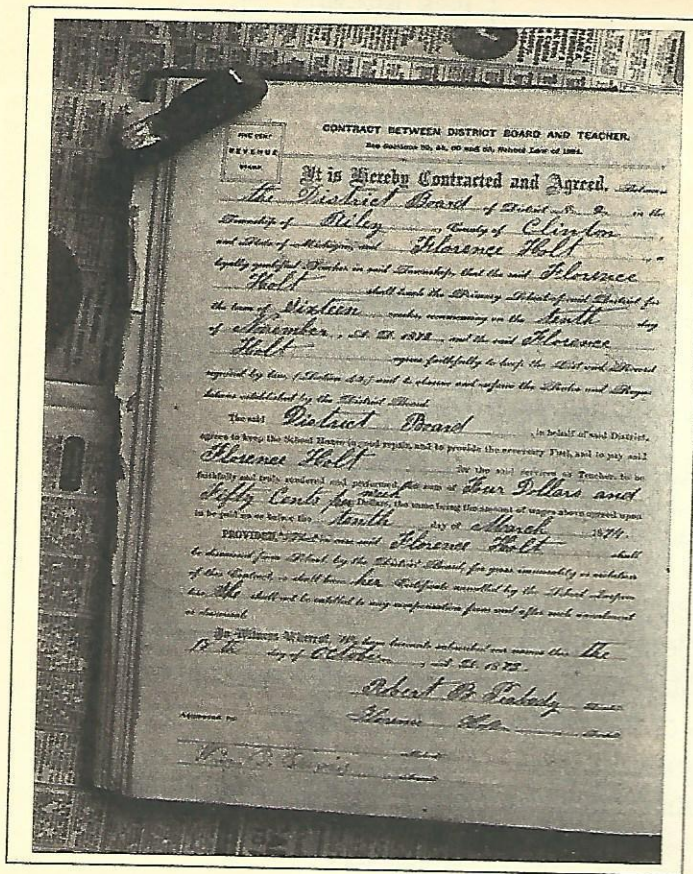 FIVE CENT
REVENUE
STAMP.
CONTRACT BETWEEN DISTRICT BOARD AND TEACHER.
See Sections School Law of
It is Hereby Contracted and Agreed, Between
the District Board of District No. 9 in the
Township of Riley County of Clinton,
and State of Michigan, and Florence Holt a
legally qualified Teacher in said Township, that the said Florence
Holt shall teach the Primary School of said District for
the term of Sixteen weeks commencing on the tenth day
of November, A. D. 1873, and the said Florence
Holt agrees faithfully to keep the List and Record
required by law (Section 43,) and to observe and enforce the Rules and Regu
lations established by the District Board.
The said District Board, in behalf of said District,
agrees to keep the School House in good repair, and to provide the necessary Fuel, and to pay said
Florence Holt for the said services as Teacher, to be
faithfully and truly rendered and performed, the sum of Four Dollars and
Fifty Cents per week Dollars, the same being the amount of wages above agreed upon
to be paid on or before the tenth day of March 1874.
PROVIDED, That in case said Florence Holt shall
be dismissed from School by the District Board, for gross immorality or violation
of this Contract, or shall have her Certificate annulled by the School Inspec
tors, She shall not be entitled to any compensation from and after such annulment
or dismissal.
In Witness Whereof, We have hereunto subscribed our names this the
18th day of October, A. D. 1873.
Robert B Peabody
Florence Holt
Approved by
Davis